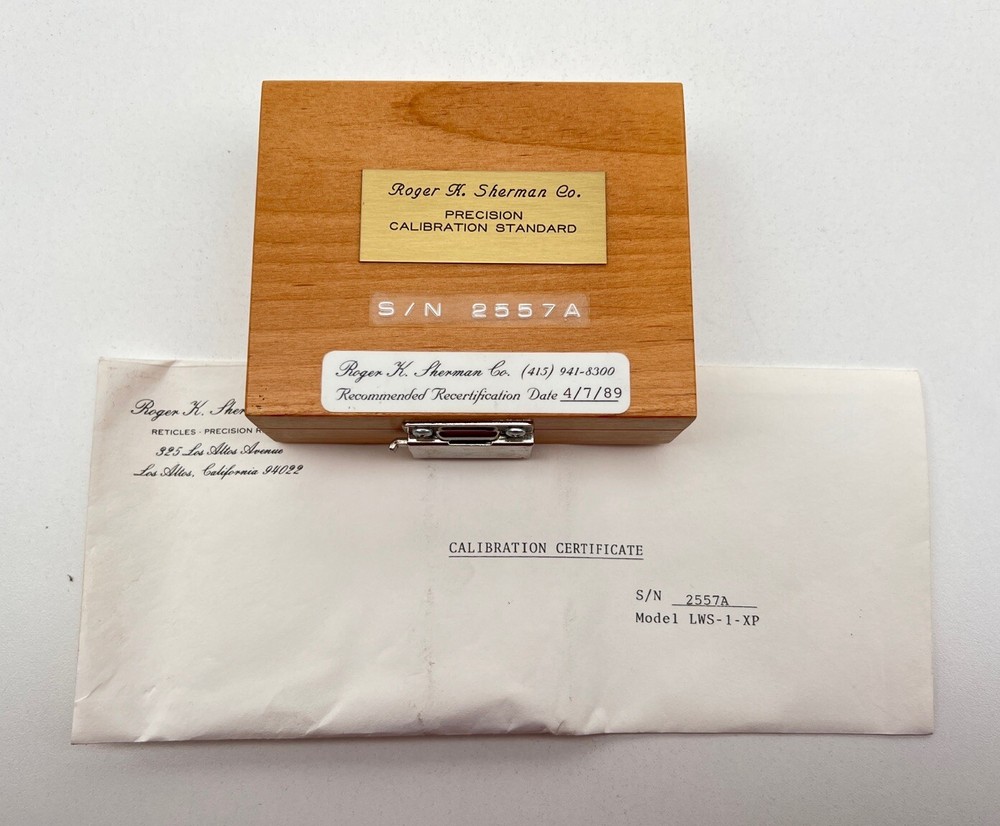 Roger K. Sherman Co.
PRECISION
CALIBRATION STANDARD
S/N 2557A
Roger K. Sherman Co. (415) 941-8300
Recommended Recertification Date 4/7/89
Roger K.
RETICLES - PRECISION
325 Los Altos Avenue
Los Altos, California 94022
CALIBRATION CERTIFICATE
S/N 2557A
Model LWS-1-XP